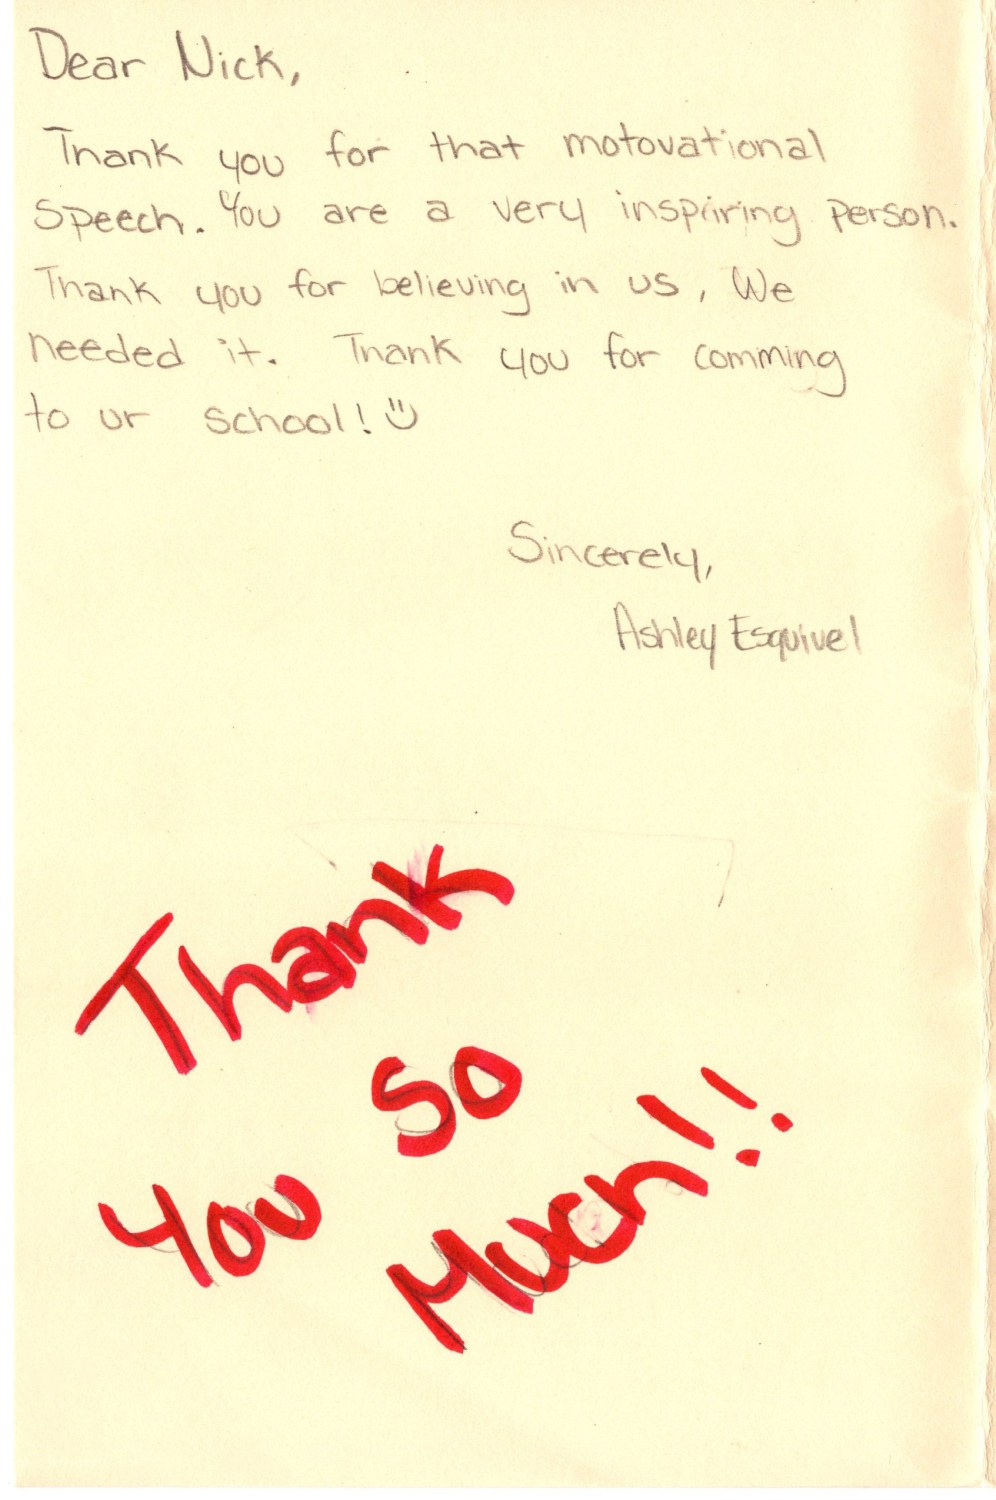 Dear Nick,
Thank you for that motovational
speech. You are a very inspiring person.
Thank you for believing in us, We
needed it. Thank you for comming
to ur school! :)
Sincerely,
Ashley Esquivel
Thank
You So
Much!!